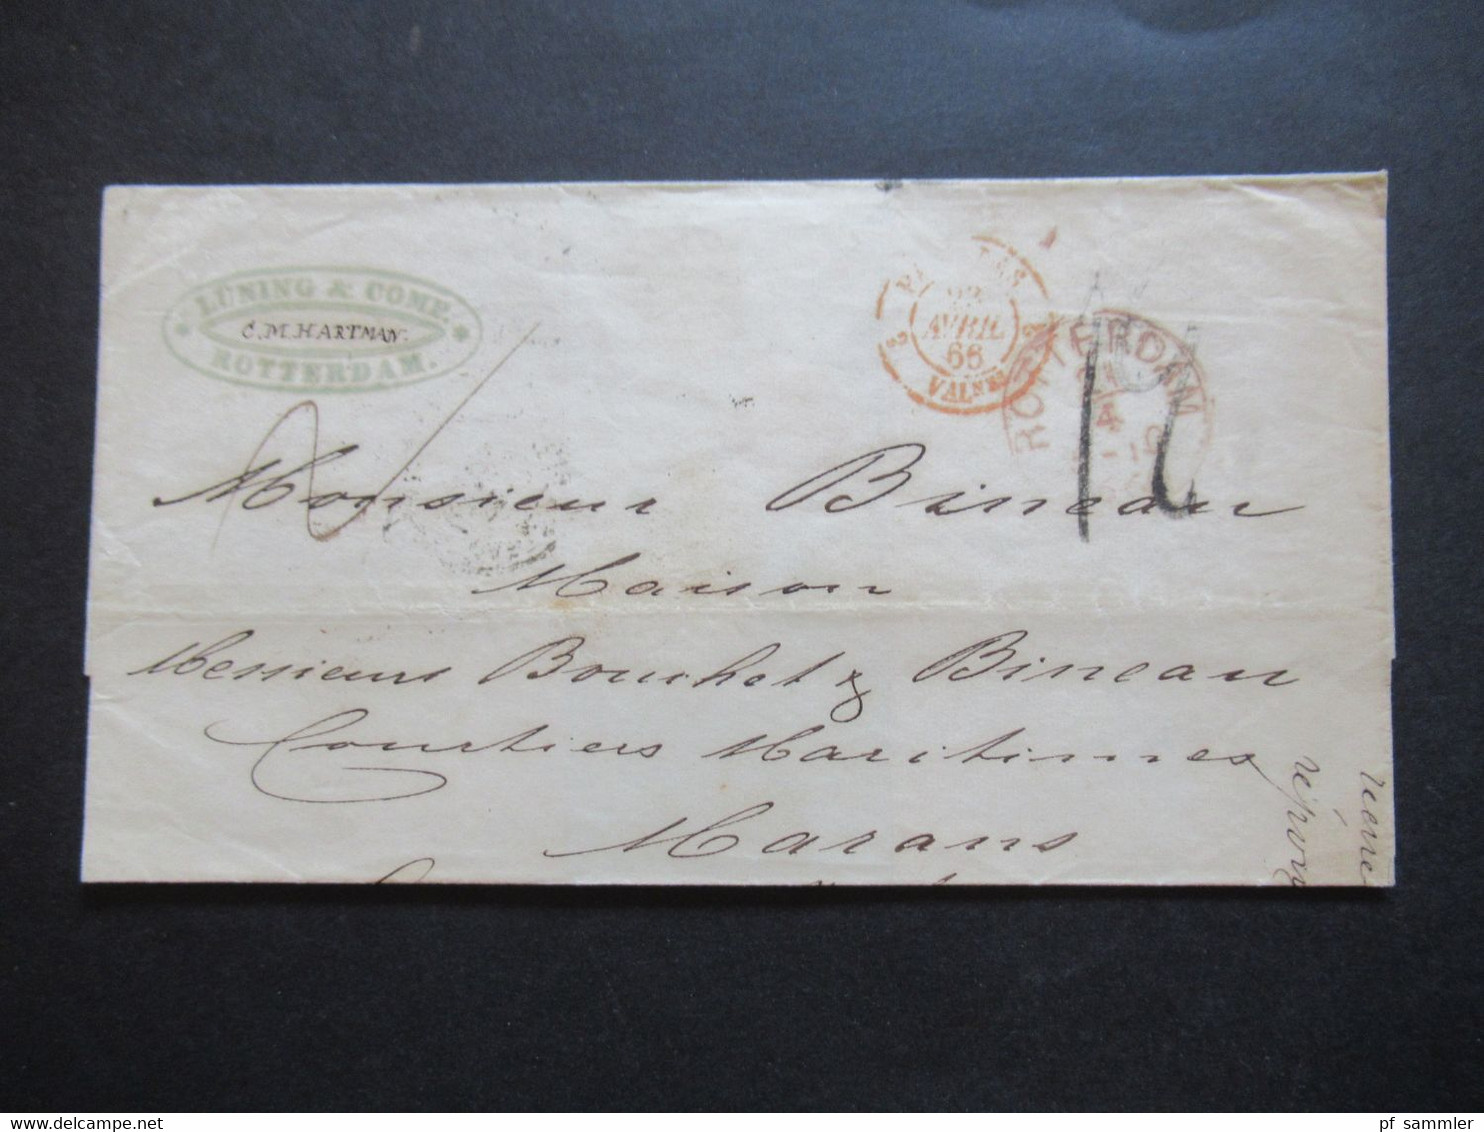 LÜNING & COMP.
C.M. HARTMAN.
ROTTERDAM.
22
AVRIL
66
VALNES
ROTTERDAM
4
12
Monsieur Bineau
Maison
Messieurs Bouchet & Bineau
Courtiers Maritimes
Marans
© delcampe.net
pf sammler